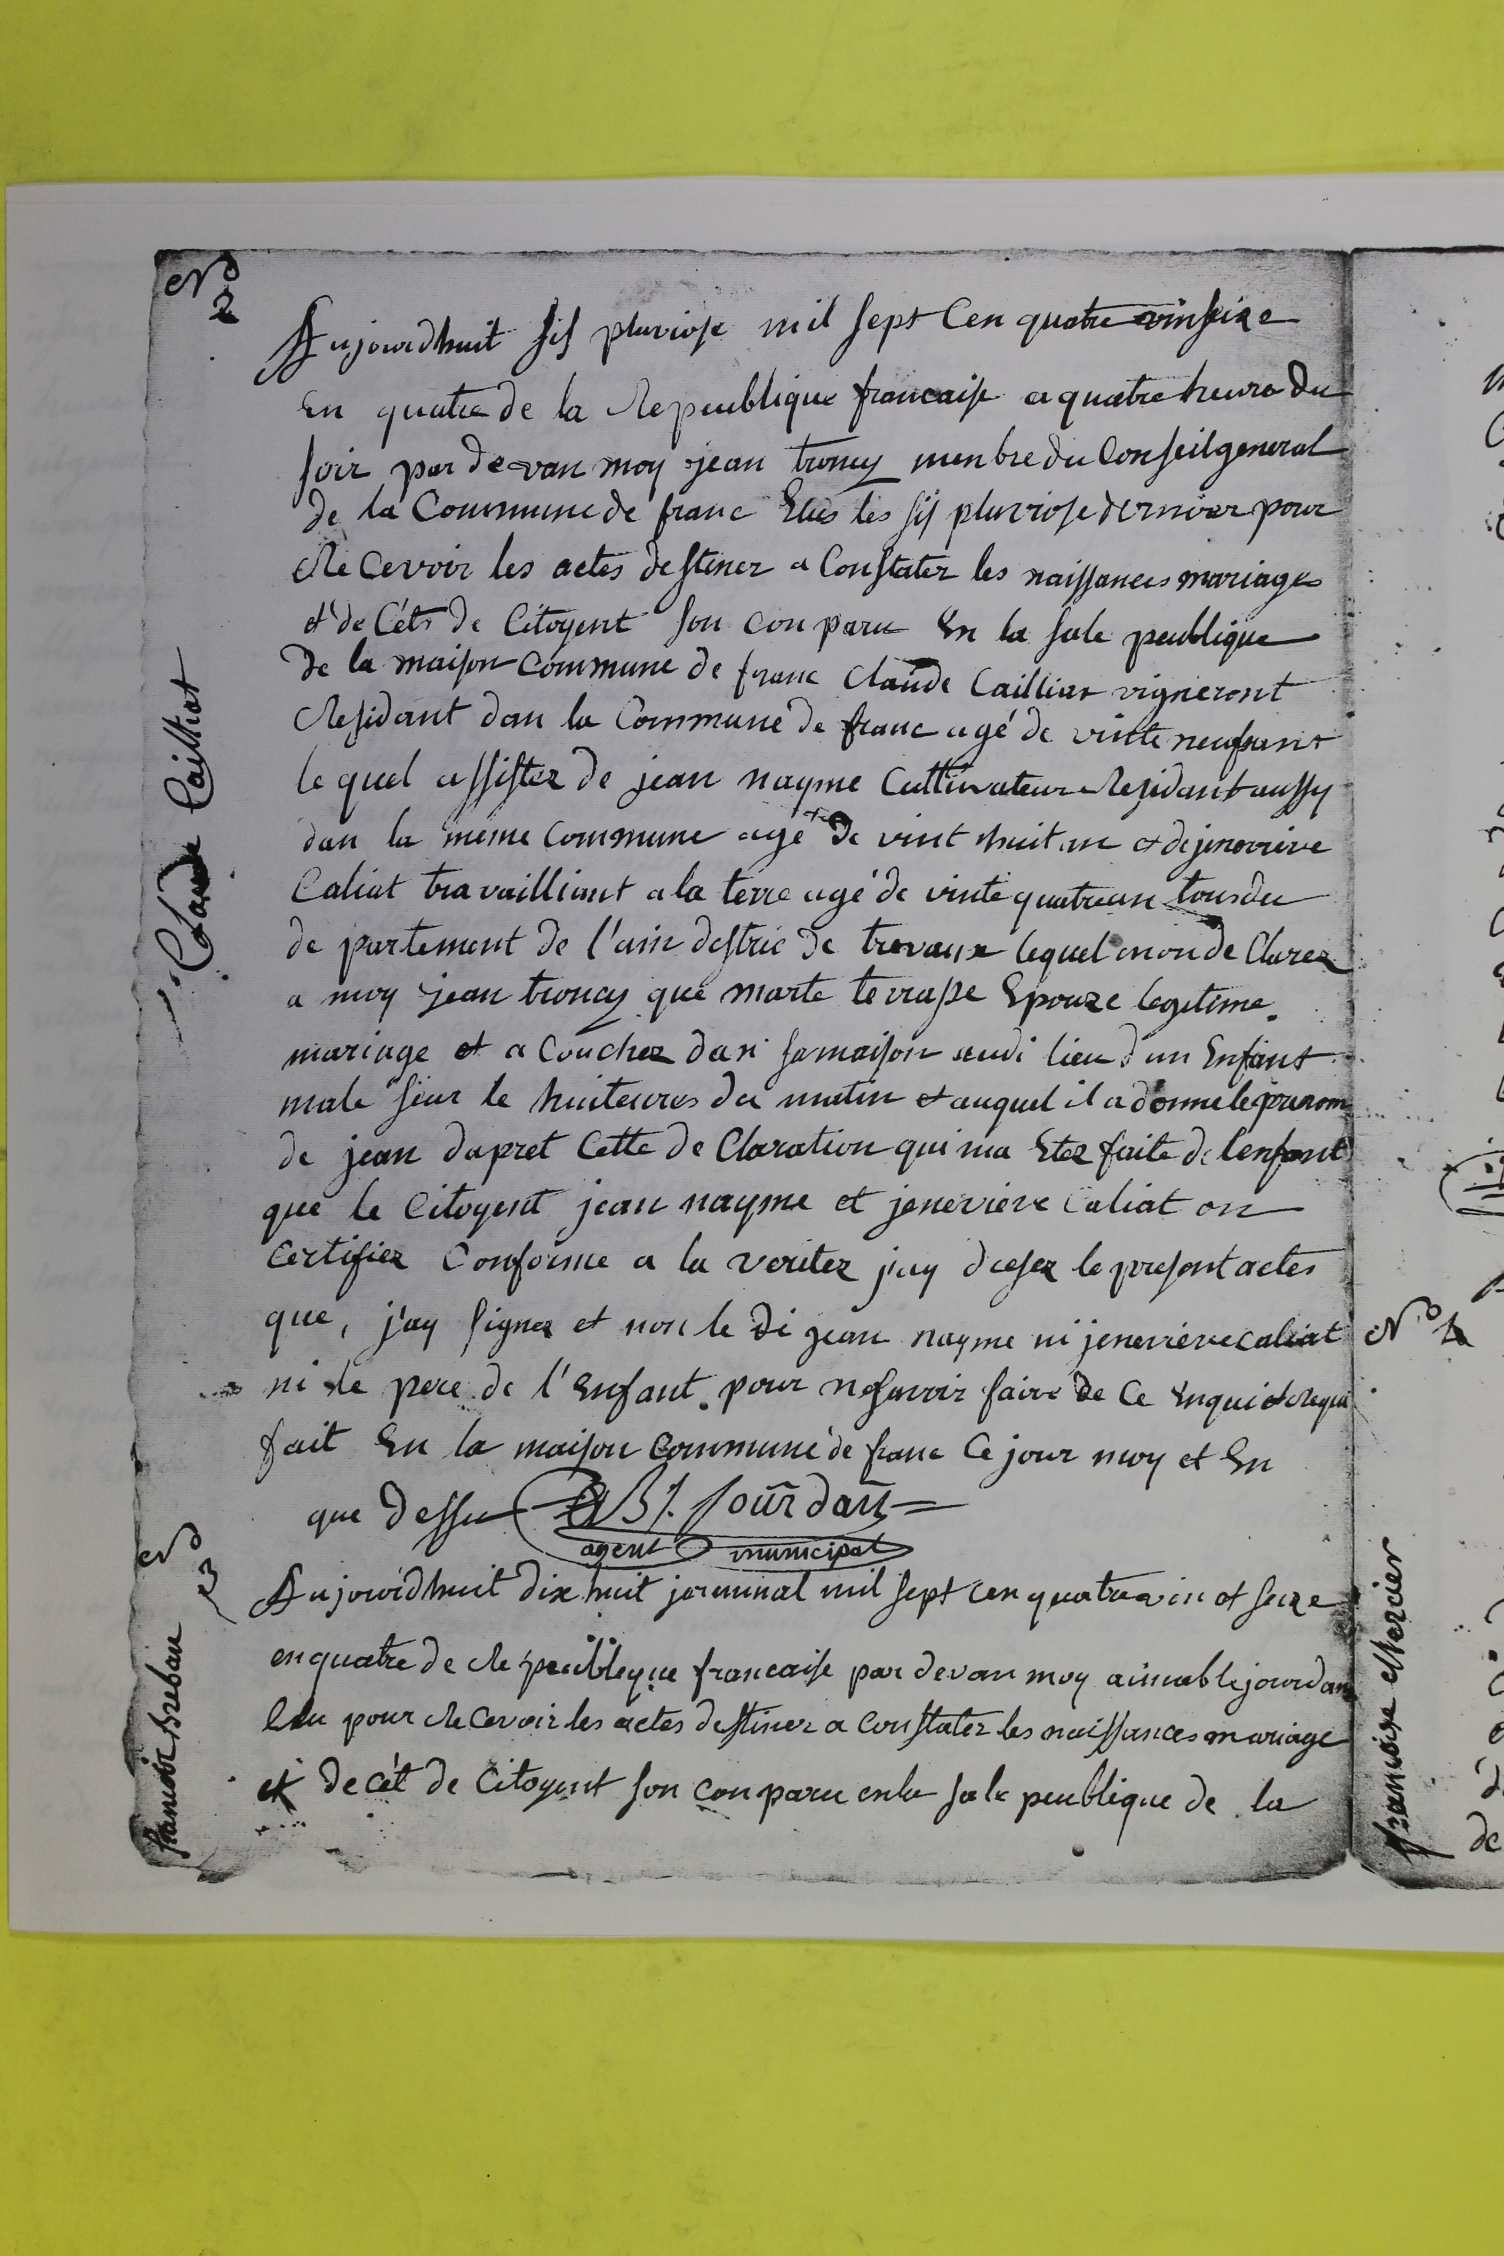 No
2
Claude Cailliat
Aujourdhuit sis pluviose mil sept Cen quatre vinseize
En quatre de la Republique francaise a quatre heure du
soir par devan moy jean troncy menbre du Conseil general
de la Commune de franc Elus les sis pluviose dernier pour
Recevoir les actes destinez a Constatez les naissances mariages
et de Céts de Citoyent son conparu En la sale peublique
de la maison commune de franc Claude Cailliat vigneront
Residant dan la Commune de franc agé de vinte neufsant
lequel assistez de jean nayme Cultivateur Residant aussy
dan la meme commune agé de vint huit an et de jenevieve
Caliat travailliant a la terre agé de vinte quatre an tous du
de partement de l'ain destric de trevaux lequel mon de Clarez
a moy jean troncy que marte terrasse Epouze legitime
mariage et a Couchez dan sa maison sudi lieu d'un Enfant
male le huiteures du matin et auquel il a donne le prenom
de jean dapret Cette de Claration qui ma Etez faite de lenfant
que le Citoyent jean nayme et jenevieve Caliat on
certifiez Conforme a la veritez j'ay dresez le present actes
que, j'ay signez et non le di jean nayme ni jenevieve caliat
ni le pere de l'Enfant pour nesavoir faire de Ce Enquie
fait En la maison commune de franc Ce jour moy et En
que dessu Jourdan
agent municipal
No
3
francoise brebau
Aujourdhuit dix huit jerminal mil sept cen quatre vin et seize
en quatre de Republeque francaise par devan moy aimable jourdan
Elu pour Recevoir les actes destinez a constatez les naissances mariage
et decét de Citoyent son conparu en la sale peublique de la
No 4
francoise Mercier
de